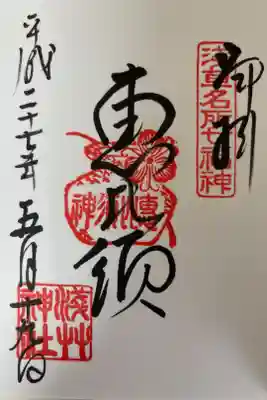 奉拝
浅草名所七福神
恵比須
恵比須神
平成二十七年五月十日
淺草神社